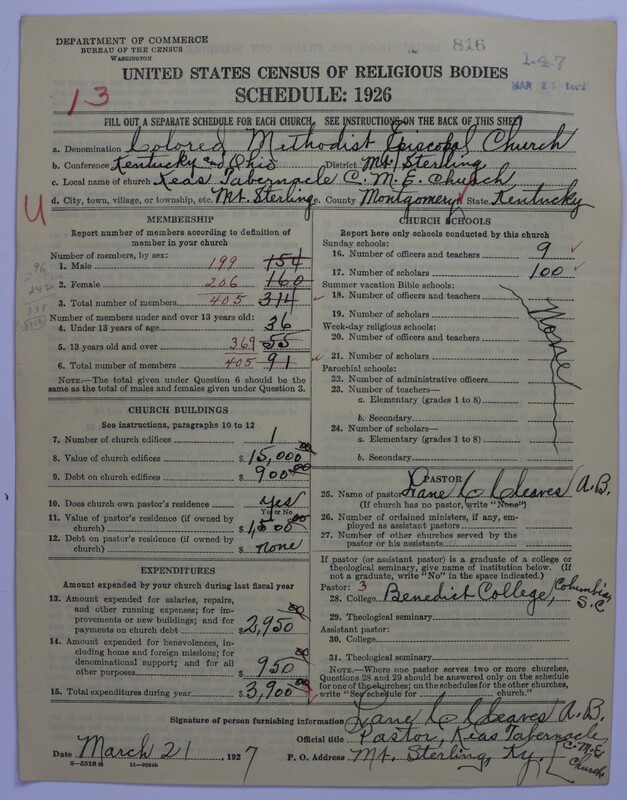 DEPARTMENT OF COMMERCE
BUREAU OF THE CENSUS
WASHINGTON
816
1-47
MAR 2
UNITED STATES CENSUS OF RELIGIOUS BODIES
13
SCHEDULE: 1926
FILL OUT A SEPARATE SCHEDULE FOR EACH CHURCH. SEE INSTRUCTIONS ON THE BACK OF THIS SHEET
a. Denomination Colored Methodist Episcopal Church
b. Conference Kentucky and Ohio District Mt. Sterling
c. Local name of church Keas Tabernacle C. M. E. Church
d. City, town, village, or township, etc. Mt. Sterling e. County Montgomery State Kentucky
U
MEMBERSHIP
Report number of members according to definition of
member in your church
Number of members, by sex:
1. Male 199 154
2. Female 206 160
3. Total number of members 405 314
Number of members under and over 13 years old:
4. Under 13 years of age 36
5. 13 years old and over 369 55
6. Total number of members 405 91
NOTE.—The total given under Question 6 should be the
same as the total of males and females given under Question 3.
CHURCH BUILDINGS
See instructions, paragraphs 10 to 12
7. Number of church edifices 1
8. Value of church edifices $15,000 00
9. Debt on church edifices $900 00
10. Does church own pastor's residence yes
Yes or No
11. Value of pastor's residence (if owned by
church) $1,500 00
12. Debt on pastor's residence (if owned by
church) $none
EXPENDITURES
Amount expended by your church during last fiscal year
13. Amount expended for salaries, repairs,
and other running expenses; for im-
provements or new buildings; and for
payments on church debt $2,950 00
14. Amount expended for benevolences,
including home and foreign missions; for
denominational support; and for all
other purposes $950 00
15. Total expenditures during year $3,900 00
CHURCH SCHOOLS
Report here only schools conducted by this church
Sunday schools:
16. Number of officers and teachers 9
17. Number of scholars 100
Summer vacation Bible schools:
18. Number of officers and teachers
19. Number of scholars
Week-day religious schools:
20. Number of officers and teachers
21. Number of scholars
None
Parochial schools:
22. Number of administrative officers
23. Number of teachers—
a. Elementary (grades 1 to 8)
b. Secondary
24. Number of scholars—
a. Elementary (grades 1 to 8)
b. Secondary
PASTOR
25. Name of pastor Lane C Cleaves A.B.
(If church has no pastor, write "None")
26. Number of ordained ministers, if any, em-
ployed as assistant pastors
27. Number of other churches served by the
pastor or his assistants
If pastor (or assistant pastor) is a graduate of a college or
theological seminary, give name of institution below. (If
not a graduate, write "No" in the space indicated.)
Pastor: 3
28. College Benedict College, Columbia, S.C
29. Theological seminary
Assistant pastor:
30. College
31. Theological seminary
NOTE.—Where one pastor serves two or more churches,
Questions 28 and 29 should be answered only on the schedule
for one of the churches; on the schedules for the other churches,
write "See schedule for church."
Signature of person furnishing information Lane C Cleaves A.B.
Official title Pastor, Keas Tabernacle C.M.E. Church
Date March 21, 1927 P. O. Address Mt. Sterling, Ky.